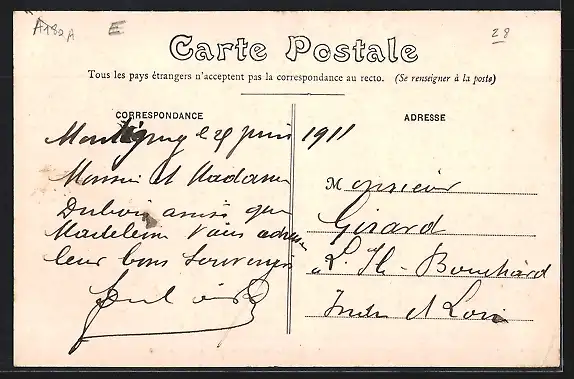 A182A E 28
Carte Postale
Tous les pays étrangers n'acceptent pas la correspondance au recto. (Se renseigner à la poste)
CORRESPONDANCE
Montigny le 29 juin 1911
Monsieur et Madame
Dubois ainsi que
Madeleine vous
leur bons souvenirs
ADRESSE
Monsieur
Girard
à L'Ile-Bouchard
Indre et Loire